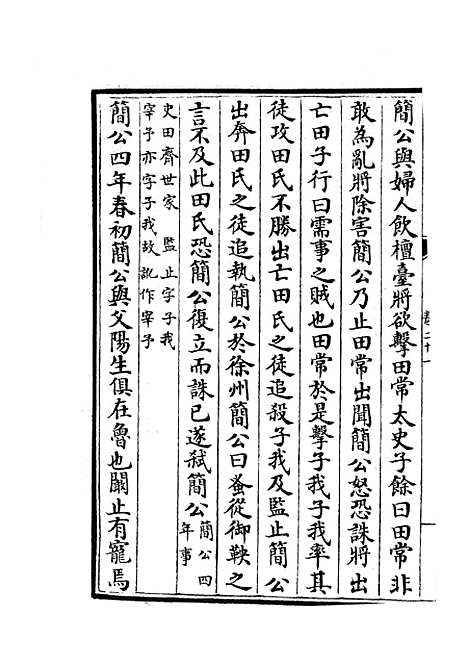 簡公與婦人飲檀臺將欲擊田常太史子餘曰田常非
敢為亂將除害簡公乃止田常出聞簡公怒恐誅將出
亡田子行曰需事之賊也田常於是擊子我子我率其
徒攻田氏不勝出亡田氏之徒追殺子我及監止簡公
出奔田氏之徒追執簡公於徐州簡公曰蚤從御鞅之
言不及此田氏恐簡公復立而誅已遂弑簡公簡公四
年事
史田齊世家監止字子我
宰予亦字子我故訛作宰予
簡公四年春初簡公與父陽生俱在魯也闞止有寵焉
卷二十一